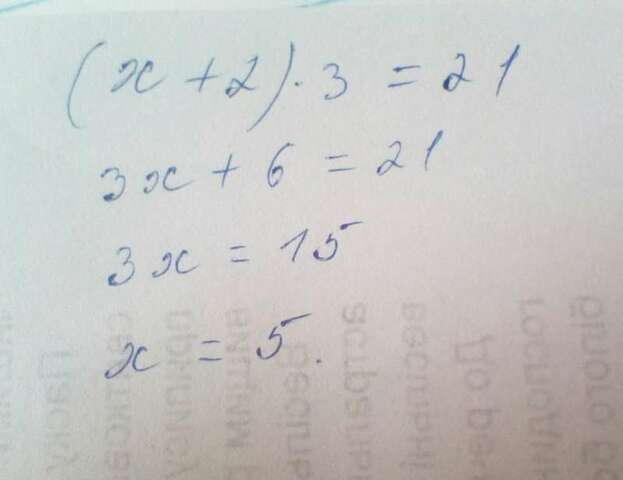 (x + 2) · 3 = 21
3x + 6 = 21
3x = 15
x = 5.